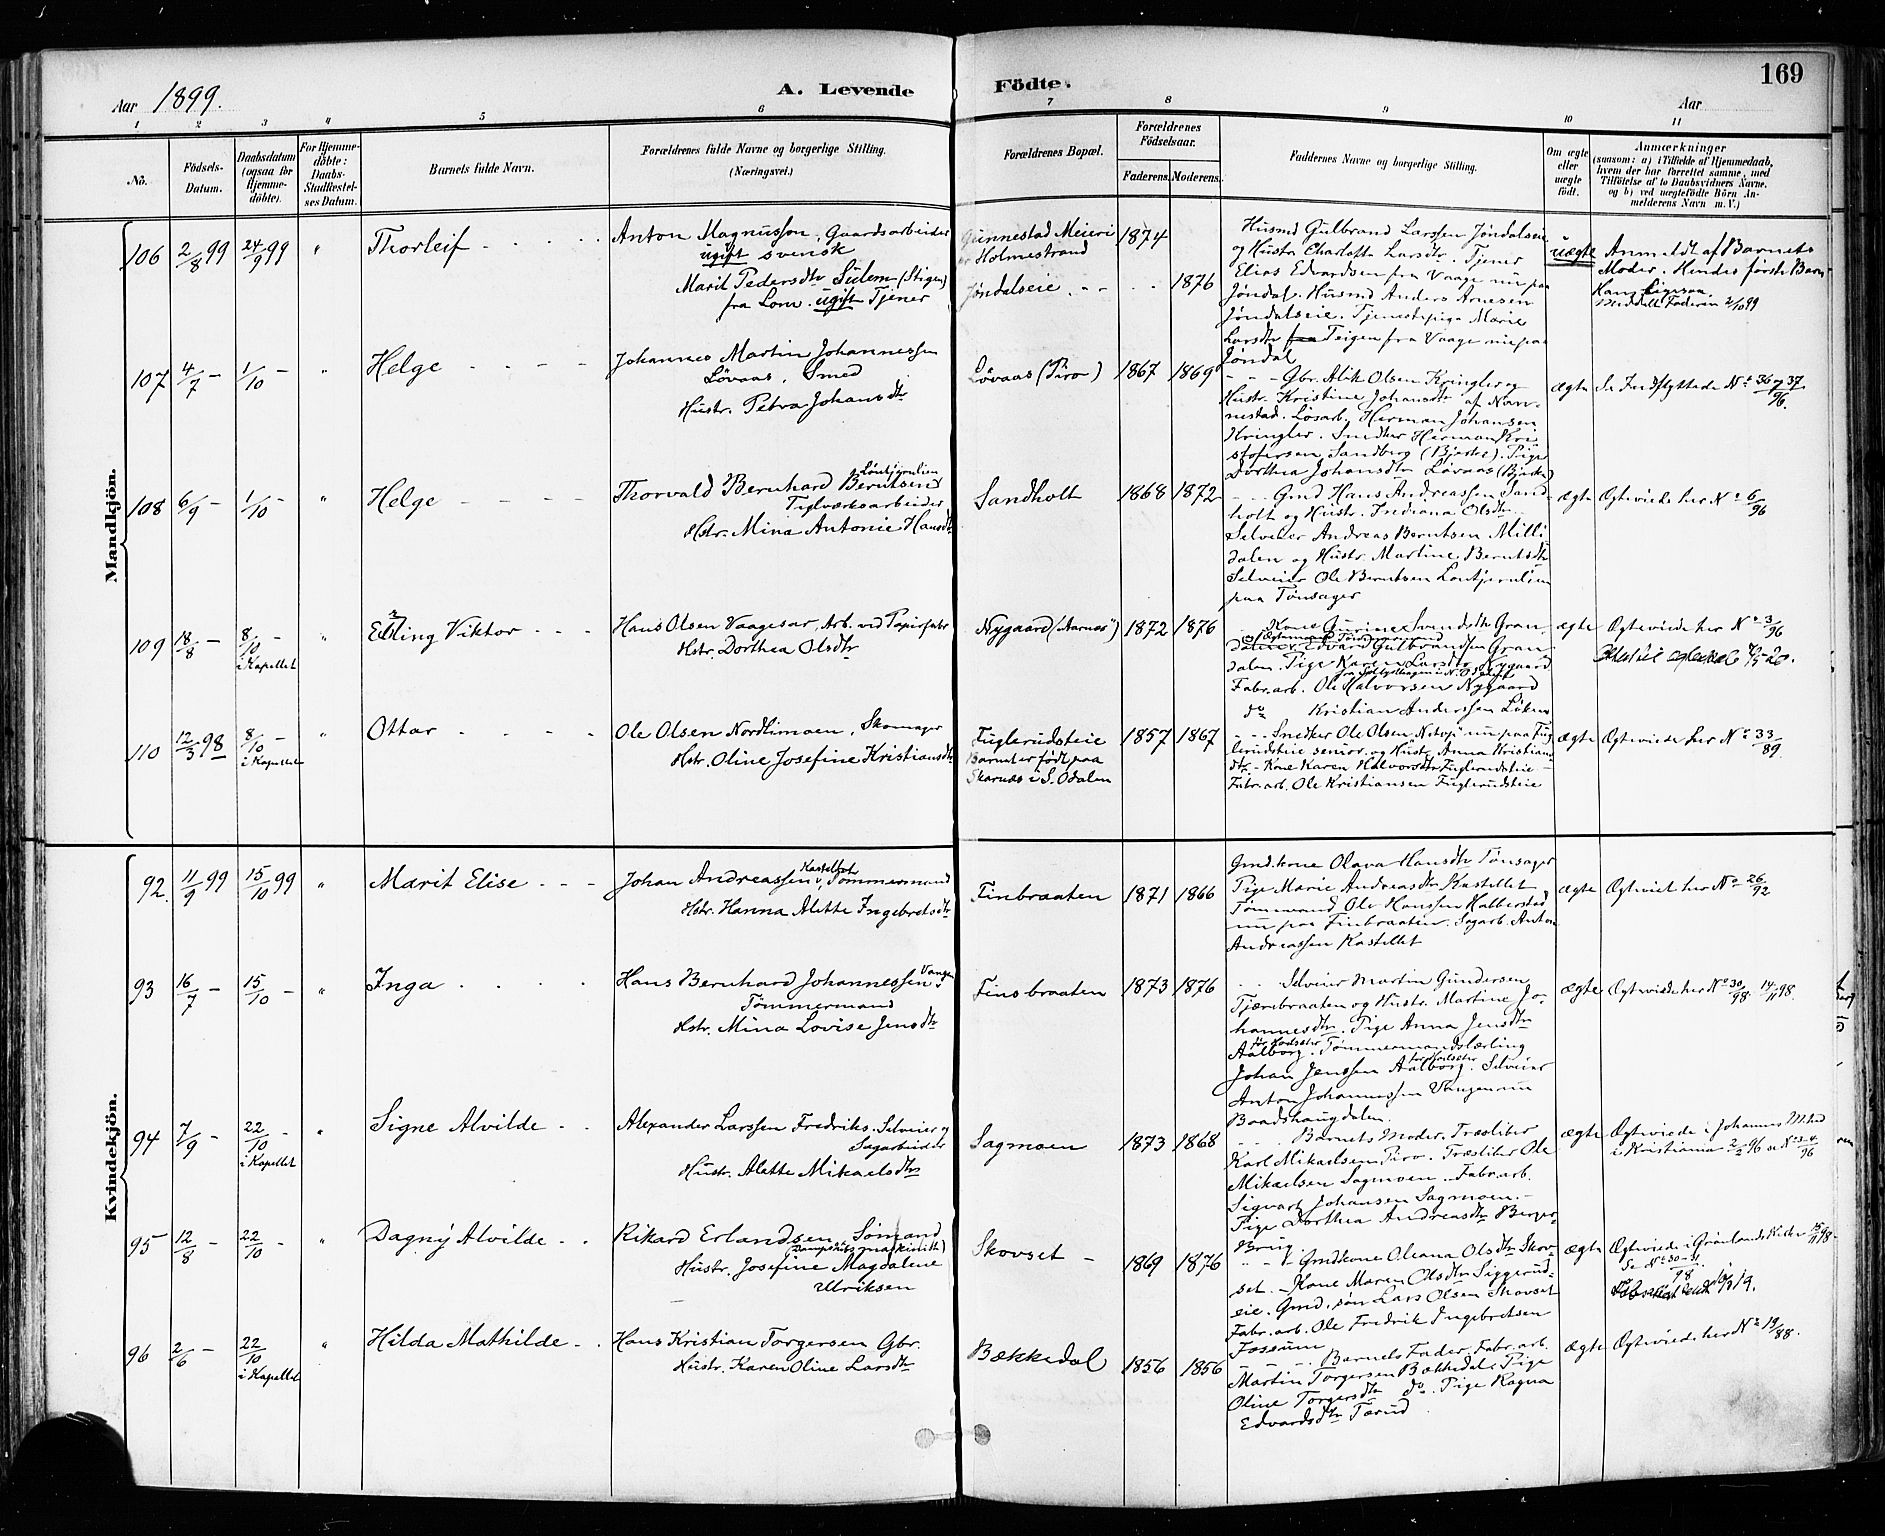 169
Aar 1899.
A. Levende Födte.
Aar
1 2 3 4 5 6 7 8 9 10 11
No.
Födsels-Datum.
Daabsdatum (ogsaa for Hjemmedöbte).
For Hjemmedöbte: Daabs-Stadfæstelses Datum.
Barnets fulde Navn.
Forældrenes fulde Navne og borgerlige Stilling.
(Næringsvei.)
Forældrenes Bopæl.
Forældrenes Födselsaar.
Faderens. Moderens.
Faddernes Navne og borgerlige Stilling.
Om ægte eller uægte födt.
Anmærkninger
(saasom: a) i Tilfælde af Hjemmedaab,
hvem der har forrettet samme, med
Tilföielse af to Daabsvidners Navne,
og b) ved uægtefödte Börn Anmelderens Navn m. V.)
Mandkjön.
106 2/8 99 24/9 99 "
Thorleif
Anton Magnusson, Gaardsarbeider
ugift svensk
Marit Pedersdtr Sulem (Stigen)
fra Lom. ugift Tjener
Gunnestad Meieri
Holmestrand
Jøndalseie
1874
1876
Husmd Gulbrand Larssen Jøndalseie
og Hustr Charlotte Larsdtr. Tjener
Elias Edvardsen fra Vaage nu paa
Jøndal. Husmd Anders Arnesen
Jøndalseie. Tjenestepige Marie
Larsdtr fra Teigen fra Vaage nu paa
Jøndal
uægte
Anmeldt af Barnets
Moder. Hendes første Barn
Hans Ligesaa
Meddelt Faderen 2/10 99
107 4/7 – 1/10 – "
Helge
Johannes Martin Johannessen
Løvaas, Smed
Hustr. Petra Johansdtr
Løvaas (Piro)
1867 1869
Gbr. Alik Olsen Kringler og
Hustr. Kristine Johansdtr af Nannestad. Løsarb. Herman Johansen
Kringler. Smeder Herman Kristofersen Sandberg (Bjerke). Pige
Dorthea Johansdtr Løvaas (Bjerke)
ægte
Se Indflyttede No 36 og 37/96.
108 6/9 – 1/10 – "
Helge
Thorvald Bernhard Berntsen
Løntjernlien
Teglværksarbeider
Hstr. Mina Antonie Hansdtr
Sandholt
1868 1872
Gmd Hans Andreassen Sandholt og Hustr. Indiana Olsdtr.
Selveier Andreas Berntsen Millidalen og Hustr Martine Berntsdtr
Selveier Ole Berntsen Løntjernlien
paa Tønsager
ægte
Ægteviede her No 6/96
109 18/8 – 8/10 – i Kapellet "
Erling Viktor
Hans Olsen Vaagesar, Arb. ved Papirfabr
Hstr. Dorthea Olsdtr
Nygaard (Aarnes)
1872 1876
Kone Gurine Svendsdtr Grandalen. Edvard Gulbrandsen Grandalen. Pige Karen Larsdtr Nygaard
Fabr. arb. Ole Halvorsen Nygaard
do Kristian Anderssen Liknes
ægte
Ægteviede her No 3/96
110 12/3 98 8/10 – i Kapellet "
Ottar
Ole Olsen Nordlimoen, Skomager
Hstr. Oline Josefine Kristiansdtr
Fuglerudseie
Barnet er født paa
Skarnæs i S. Odalen
1857 1867
Snedker Ole Olsen Netop nu paa Fuglerudseie senior og Hustr Anna Kristiansdtr – Kone Karen Halvorsdtr Fuglerudseie –
Fabr. arb. Ole Kristiansen Fuglerudseie
ægte
Ægteviede her No 33/89.
Kvindekjön.
92. 11/9 99 15/10 99 "
Marit Elise
Johan Andreassen Kastellet, Tømmermand
Hstr. Hanna Alette Ingebretsdtr
Finbraaten
1871 1866
Gmd. kone Olava Hansdtr Tønsager
Pige Marie Andreasdtr Kastellet
Tømmermand Ole Hanssen Halberstad
nu paa Finbraaten. Sagarb. Anton
Andreassen Kastellet
ægte
Ægteviet her No 26/92
93 16/7 – 15/10 – "
Inga
Hans Bernhard Johannessen Vangen
Tømmermand
Hstr. Mina Lovise Jensdtr
Finsbraaten
1873 1876
Selveier Martin Gundersen
Tjærnbraaten og Hustr. Martine Johannesdtr. Pige Anna Jensdtr
Aalborg. Tømmermandslærling
Johan Jenssen Aalborg. Selveier
Anton Johannessen Vangen nu
Baadshaugdalen.
ægte
Ægteviede her No 30/98. 14/11 98.
94 7/9 – 22/10 – i Kapellet "
Signe Alvilde
Alexander Larssen Fredriks. Selveier og
Sagarbeider
Hustr. Alette Mikaelsdtr
Sagmoen
1873 1868
Barnets Moder. Træsliber
Karl Mikaelsen Piro. Træsliber Ole
Mikaelsen Sagmoen. Fabr. arb.
Sigvart Johansen Sagmoen. –
Pige Dorthea Andreasdtr Berger
Brug
ægte
Ægteviede i Johannes Mhed
i Kristiania 2/2 96 se No 3-4/96
95 12/8 – 22/10 – "
Dagny Alvilde
Rikard Erlandsen, Sömand
(Dampskibsmaskinist)
Hustr. Josefine Magdalene
Ulriksen
Skovset –
1869 1876
Gmdkone Oleana Olsdtr Skovset. Kone Maren Olsdtr Siggerudeie. Gmd. søn Lars Olsen Skovset
Fabr. arb. Ole Fredrik Ingebretsen
Fossum
ægte
Ægteviede i Grønlands Kirke 15/11 98.
Se No 30-31/98
96 2/6 – 22/10 i Kapellet "
Hilda Mathilde
Hans Kristian Torgersen Gbr.
Hustr. Karen Oline Larsdtr
Bækkedal
1856 1856
Barnets Fader. Fabr. arb.
Martin Torgersen Bækkedal. Pige
Oline Torgersdtr do. Pige Ragna
Edvardsdtr Tærud
ægte
Ægteviede her No 19/88.